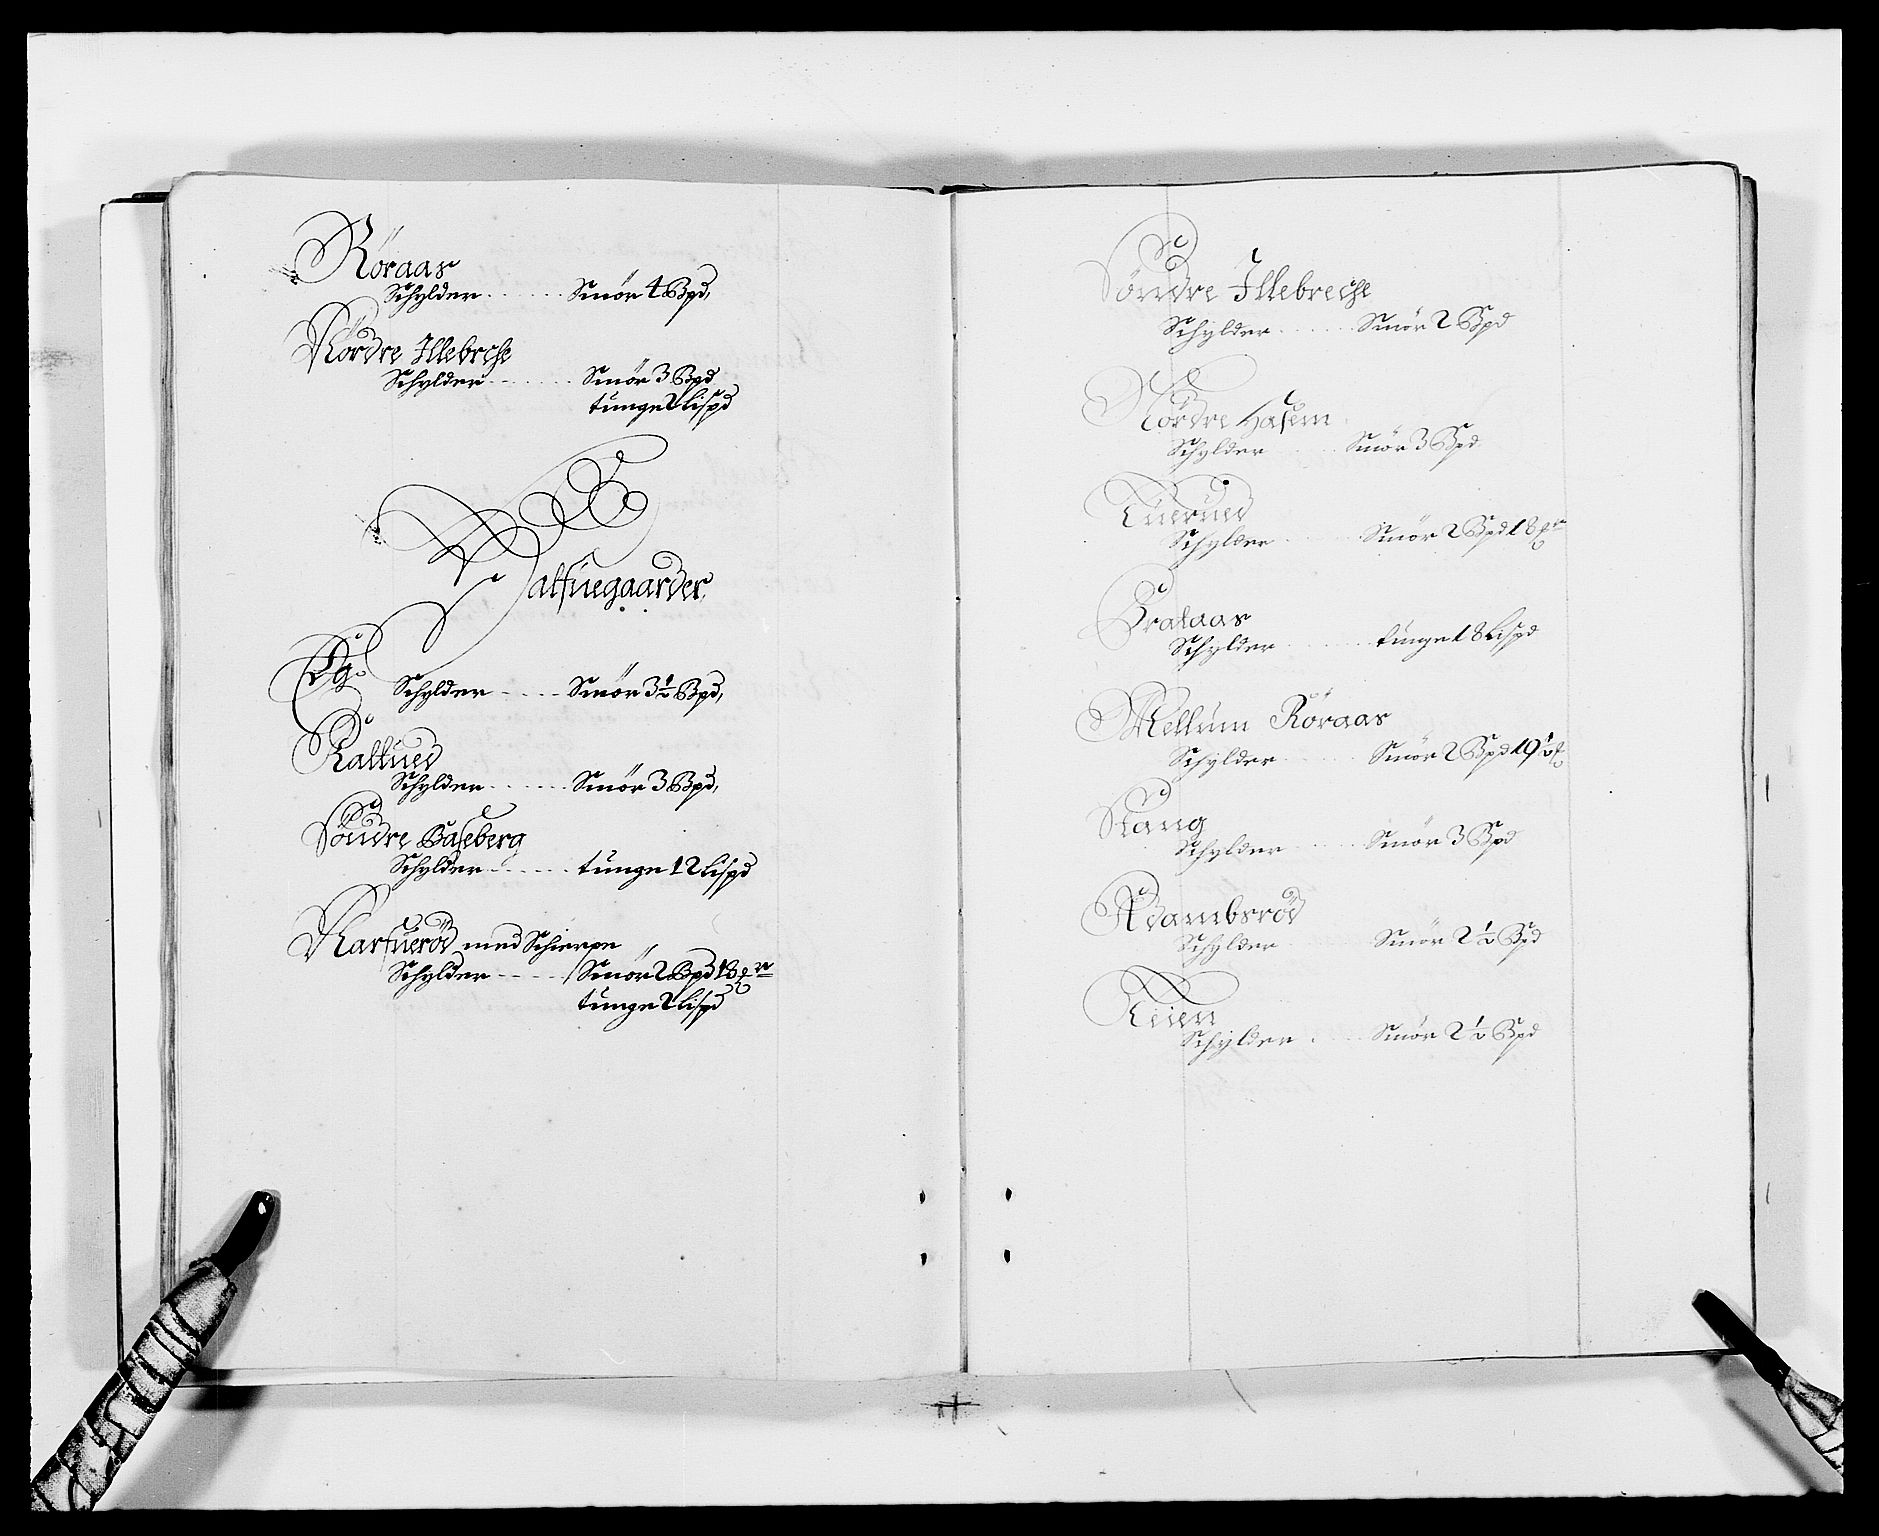 Röraas
Schylder ...... Smör 4 Bpd,
Nordre Illebrche
Schylder ...... Smör 3 Bpd
tunge 2 Lispd
Halfuegaarder
Eg.
Schylder .... Smör 3½ Bpd,
Raltued
Schylder ...... Smör 3 Bpd,
Söndre Baseberg
Schylder ...... tunge 12 Lispd
Narfueröd med Schierpe
Schylder .... Smör 2 Bpd 18
tunge 2 Lispd
Söndre Illebreche
Schylder ...... Smör 2 Bpd
Nordre Hasem
Schylder ...... Smör 3 Bpd
Tuerued
Schylder ...... Smör 2 Bpd 18
Grataas
Schylder ...... tunge 18 Lispd
Mellum Röraas
Schylder ...... Smör 2 Bpd 19½
Stang
Schylder ...... Smör 3 Bpd
Adambsröd
Schylder Smör 2½ Bpd
Tuen
Schylder .... Smör 2½ Bpd